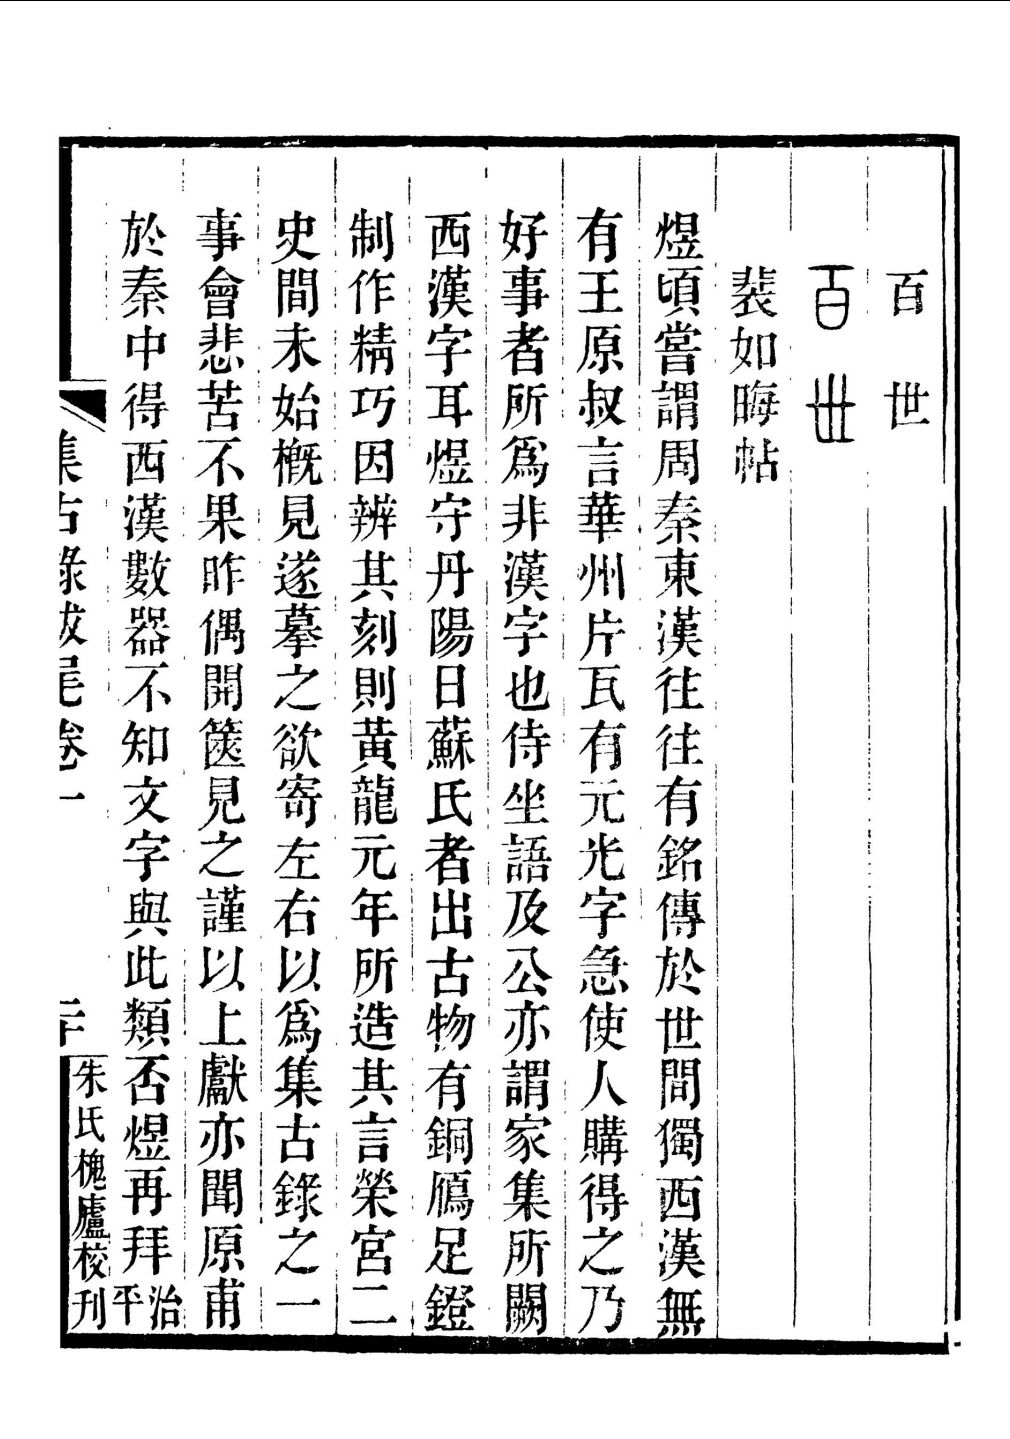 百世
百世
裴如晦帖
煜頃嘗謂周秦東漢往往有銘傳於世間獨西漢無
有王原叔言華州片瓦有元光字急使人購得之乃
好事者所為非漢字也侍坐語及公亦謂家集所闕
西漢字耳煜守丹陽日蘇氏者出古物有銅鴈足鐙
制作精巧因辨其刻則黃龍元年所造其言榮宮二
史間未始槪見遂摹之欲寄左右以為集古錄之一
事會悲苦不果昨偶開篋見之謹以上獻亦聞原甫
於秦中得西漢數器不知文字與此類否煜再拜治平
集古錄跋尾卷一
二十
朱氏槐廬校刊